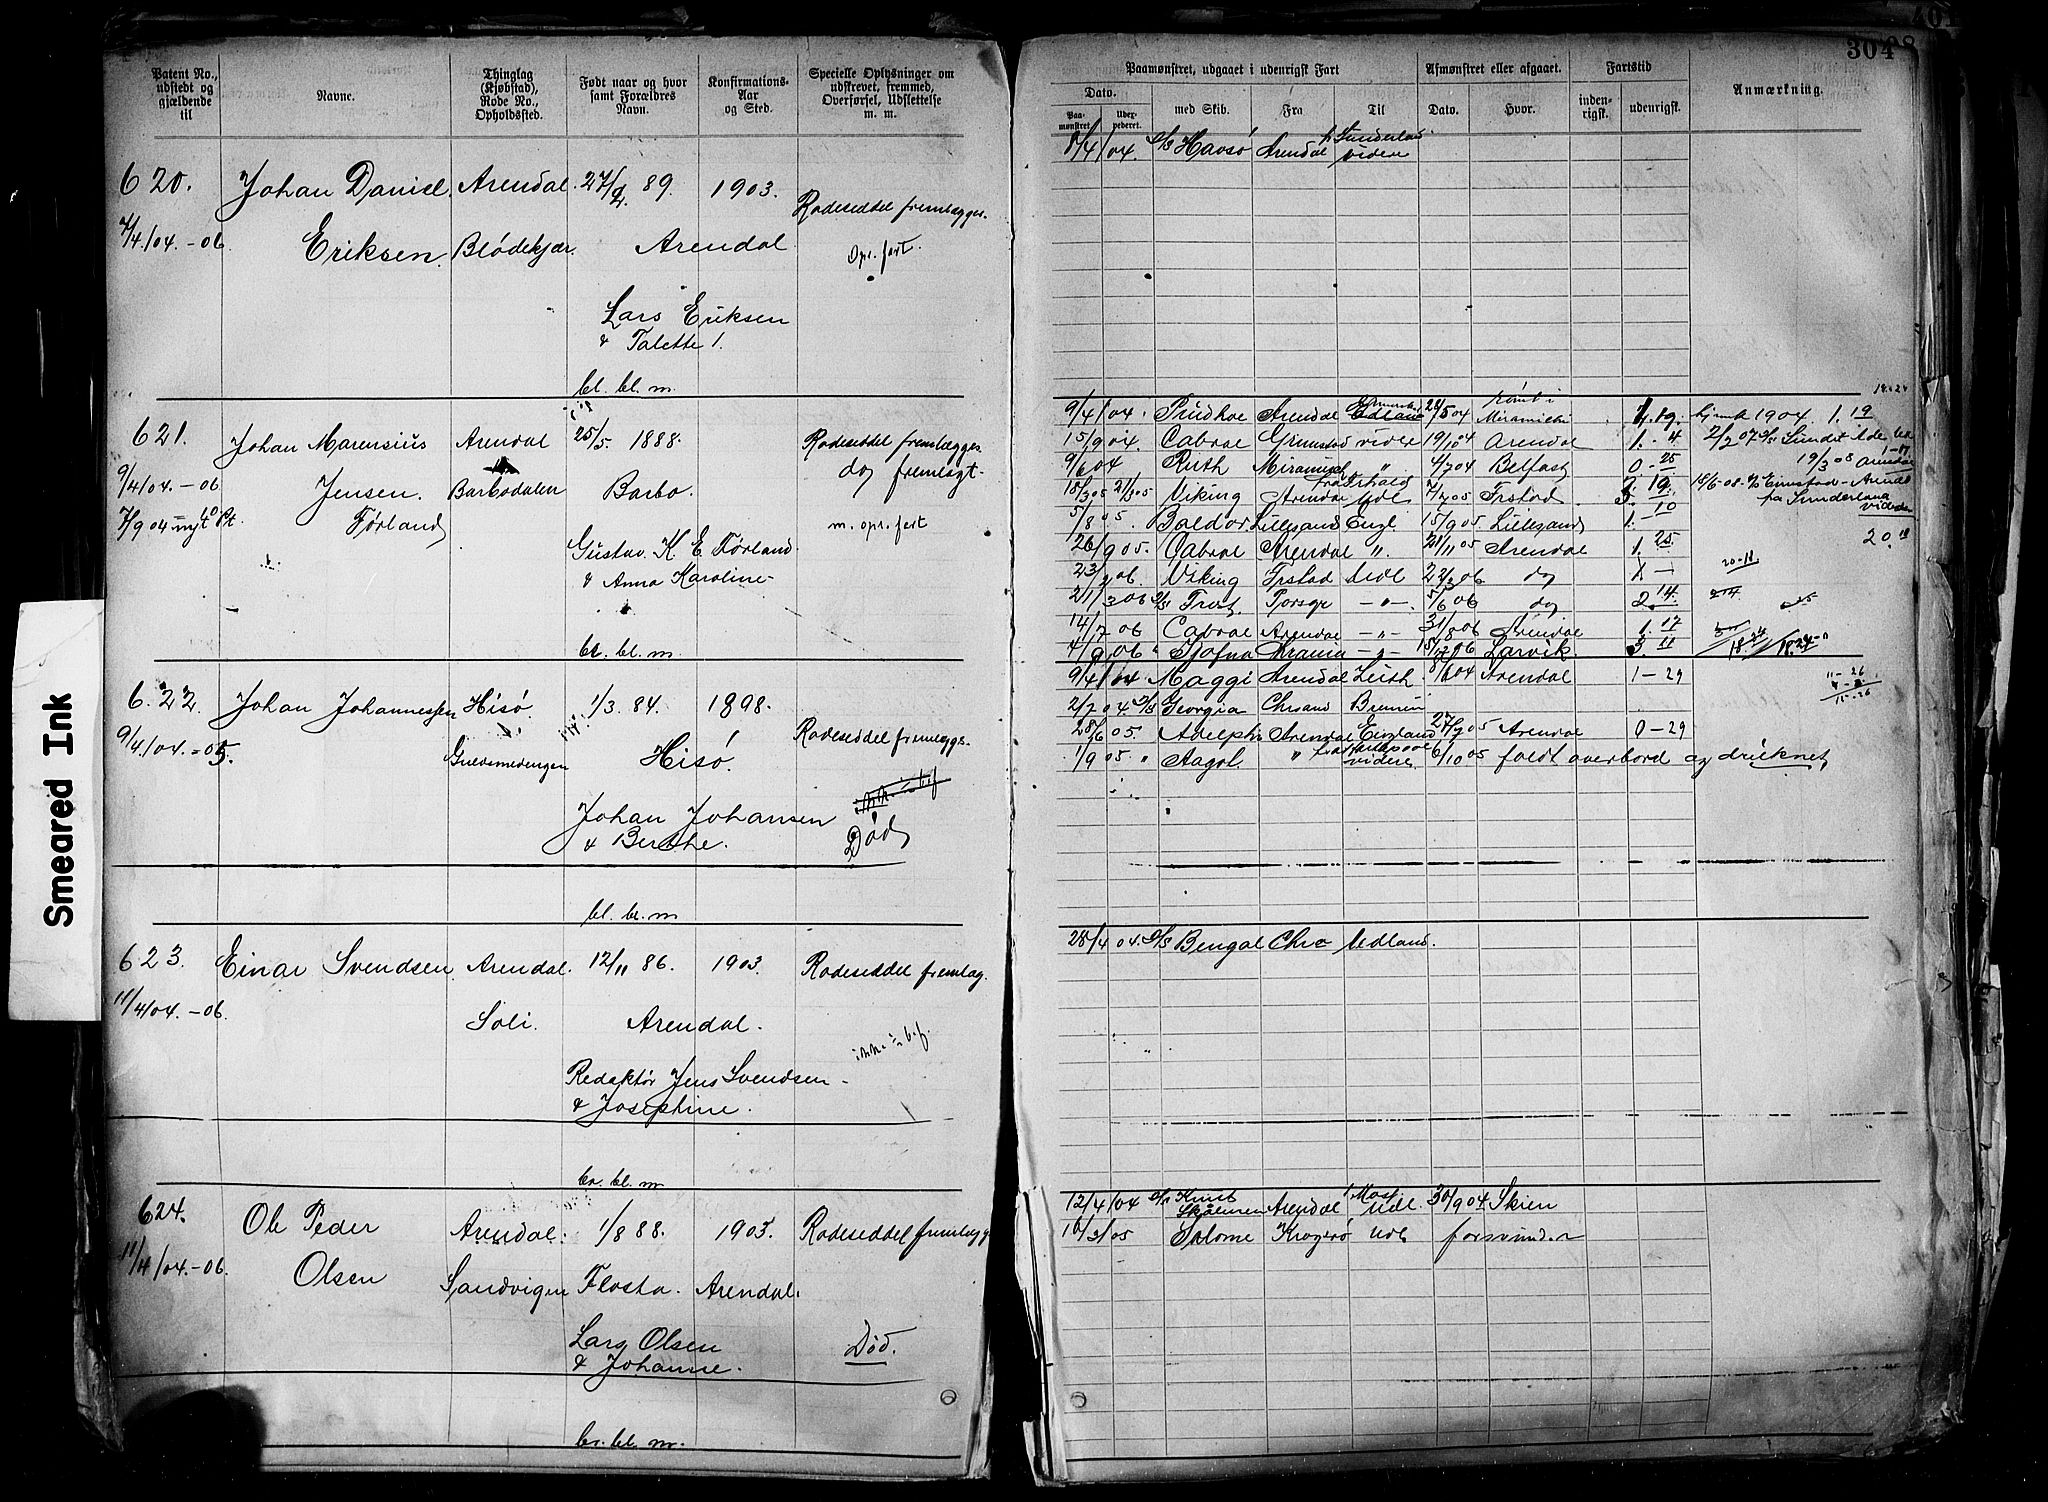 Smeared Ink
304
Patent No., udstedt og gjældende til
Navne.
Thinglag (Kjøbstad), Rode No., Opholdssted.
Født naar og hvor samt Forældres Navn.
Konfirmations-Aar og Sted.
Specielle Oplysninger om udskrevet, fremmed, Overførsel, Udslettelse m. m.
Paamønstret, udgaaet i udenrigsk Fart
Afmønstret eller afgaaet.
Fartstid
Anmærkning.
Dato.
Paamønstret.
Udexpederet.
med Skib.
Fra
Til
Dato.
Hvor.
indenrigsk.
udenrigsk.
620. Johan Daniel Arendal. 27/2 89. 1903. Rodeseddel fremlægges.
7/4/04.-06. Eriksen. Blødekjær. Arendal Opr. fart.
Lars Eriksen
& Talette
bl. bl. m.
8/4/04. D/S Havsø Arendal Sunderland videre
621. Johan Marensius Arendal 25/5. 1888. Rodeseddel fremlægges
9/4/04.-06 Jensen. Barbodalen Barbo. dog fremlagt.
7/9 04 nyt Pt. Førland m. opr. fart
Gustav K E Førland.
& Anna Karoline
bl. bl. m
9/4/04. Prudhoe Arendal Udland 5/04 Miramichi 1904. 1. 19
15/9 04. Cabral Grimstad videre 19/10 04 Arendal 1. - 4
9/6 04 Ruth Miramichi " 4/7 04 Belfast 0-25 19/3 08 Arendal
18/3 05 21/3 05 Viking Arendal Udl 7/7 05 Frstad 3. 19.
5/8 05. Baldor Lillesand Engl 15/9 05 Lillesand 1.-10
26/9 05. Cabral Arendal ". 21/11 05 Arendal 1. 25 20.
23/2 06. Viking Frstad Udl 22/3 06 do 1 - 20-18
21/3 06 D/S Trost Porsgr - " -. 5/6 06 do 2. 14.
14/7 06 Cabral Arendal - " - 31/8 06 Arendal 1. 17
4/9 06 Sjofna - " - 06 Larvik 3 11
622. Johan Johannessen Hisø. 1/3. 84. 1898. Rodeseddel fremlægges.
9/4/04.-05. Guldsmedengen Hisø.
Johan Johansen Død
& Berthe.
bl. bl. m
9/4/04. Maggi Arendal Leith 8/6 04 Arendal 1-29
2/7 04. D/S Georgia Chrsand Bremen
28/6 05. Adelphi Arendal England 27/7 05 Arendal 0-29
1/9 05. " Aagot. " videre 6/10 05 faldt overbord og druknet.
623. Einar Svendsen Arendal. 12/11 86. 1903. Rodeseddel fremlag.
11/4/04.-06. Soli. Arendal.
Redaktør Jens Svendsen
& Josephine.
br. bl. m
28/4 04. D/S Bengal Chra Udland.
624. Ole Peder Arendal. 1/8 88. 1903. Rodeseddel fremlægg
11/4/04.-06. Olsen Sandvigen Flosta. Arendal.
Lars Olsen Død.
& Johanne.
br. bl. m.
12/4/04 D/S Knut Skålureen Arendal Udl. 30/9 04 Skien
10/3/05 Salome Kragerø Udl forsvunden